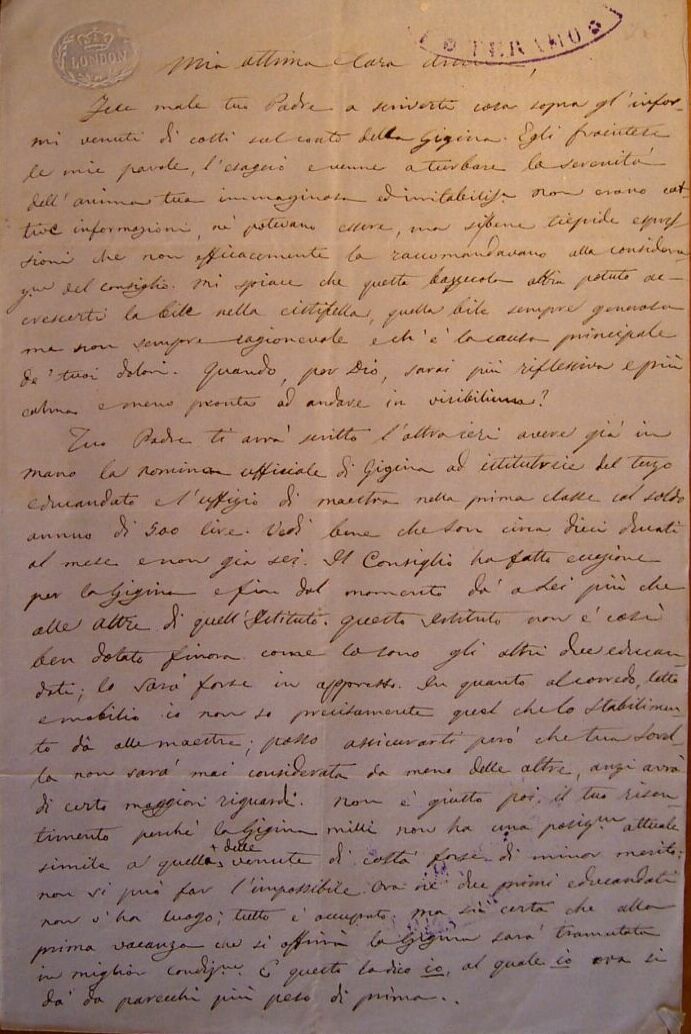 LONDON
TERAMO
Mia ottima e Cara
Fece male tuo Padre a scriverti cosa sopra gl'infor-
mi venuti di costì sul conto della Gigina. Egli frantese
le mie parole, l'esagerò e venne a turbare la serenità
dell'anima tua immaginosa ed irritabilissa non erano cat-
tive informazioni, nè potevano essere, ma sibbene tiepide espres-
sioni che non efficacemente la raccomandavano alla considera-
zne del consiglio. Mi spiace che questa bazzecola abbia potuto ac-
crescerti la bile nella cistifella, quella bile sempre generosa
ma non sempre ragionevole e ch'è la causa principale
de' tuoi dolori. Quando, per Dio, sarai più riflessiva e più
calma e meno pronta ad andare in visibilium?
Tuo Padre ti avrà scritto l'altro ieri avere già in
mano la nomina officiale di Gigina ad istitutrice del terzo
educandato e l'uffizio di maestra nella prima classe col soldo
annuo di 500 lire. Vedi bene che son circa dieci ducati
al mese e non già sei. Il Consiglio ha fatto eccezione
per la Gigina e fin dal momento dà a Lei più che
alle altre di quell'Istituto. Questo Istituto non è così
ben dotato finora come lo sono gli altri due educan-
dati; lo sarà forse in appresso. In quanto al corredo, letto
e mobilio io non so precisamente quel che lo stabilimen-
to dà alle maestre; posso assicurarti però che tua sorel-
la non sarà mai considerata da meno delle altre, anzi avrà
di certo maggiori riguardi. Non è giusto poi, il tuo risen-
timento perchè la Gigina Milli non ha una posizne attuale
simile a quella delle venute di costà forse di minor merito:
non si può far l'impossibile. Ora ne' due primi educandati
non v'ha luogo; tutto è occupato; ma sii certa che alla
prima vacanza che si offrirà la Gigina sarà tramutata
in miglior condizne. E questo lo dico io, al quale io ora si
dà da parecchi più peso di prima..